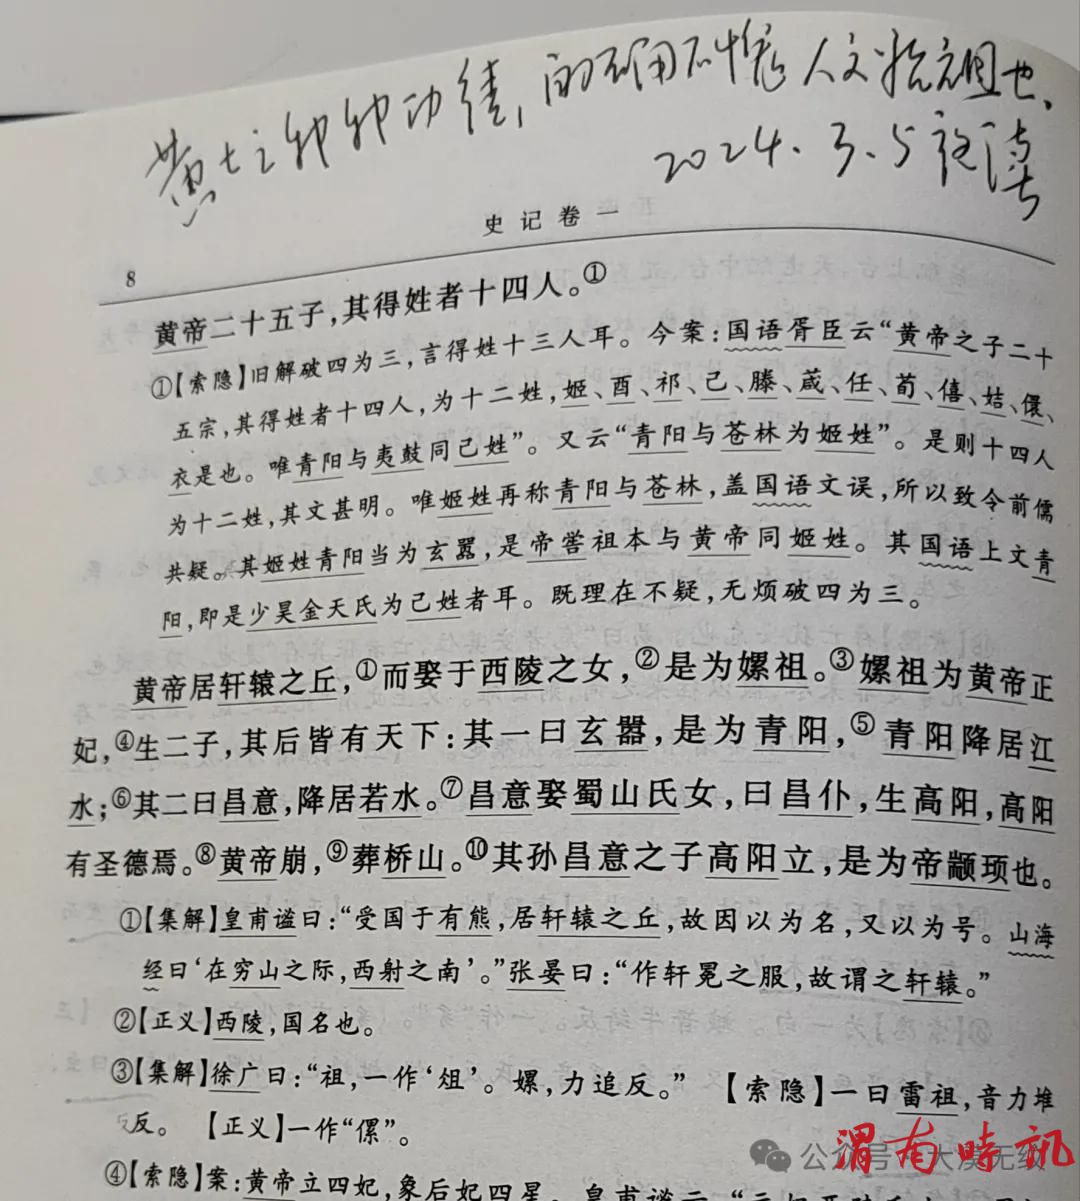 黄帝之种种功绩，的确不愧人文始祖也、
2024.3.5夜读
史记卷一
8
黄帝二十五子，其得姓者十四人。①
①【索隐】旧解破四为三，言得姓十三人耳。今案：国语胥臣云“黄帝之子二十
五宗，其得姓者十四人，为十二姓，姬、酉、祁、己、滕、葴、任、荀、僖、姞、儇、
衣是也。唯青阳与夷鼓同己姓”。又云“青阳与苍林为姬姓”。是则十四人
为十二姓，其文甚明。唯姬姓再称青阳与苍林，盖国语文误，所以致令前儒
共疑。其姬姓青阳当为玄嚣，是帝喾祖本与黄帝同姬姓。其国语上文青
阳，即是少昊金天氏为己姓者耳。既理在不疑，无烦破四为三。
黄帝居轩辕之丘，①而娶于西陵之女，②是为嫘祖。③嫘祖为黄帝正
妃，④生二子，其后皆有天下：其一曰玄嚣，是为青阳，⑤青阳降居江
水；⑥其二曰昌意，降居若水。⑦昌意娶蜀山氏女，曰昌仆，生高阳，高阳
有圣德焉。⑧黄帝崩，⑨葬桥山。⑩其孙昌意之子高阳立，是为帝颛顼也。
①【集解】皇甫谧曰：“受国于有熊，居轩辕之丘，故因以为名，又以为号。山海
经曰‘在穷山之际，西射之南’。”张晏曰：“作轩冕之服，故谓之轩辕。”
②【正义】西陵，国名也。
③【集解】徐广曰：“祖，一作‘俎’。嫘，力追反。”　【索隐】一曰雷祖，音力堆
反。　【正义】一作“傫”。
④【索隐】案：黄帝立四妃，象后妃四星。皇甫谧云：“元妃西陵
公众号 大漠无级
渭南时讯